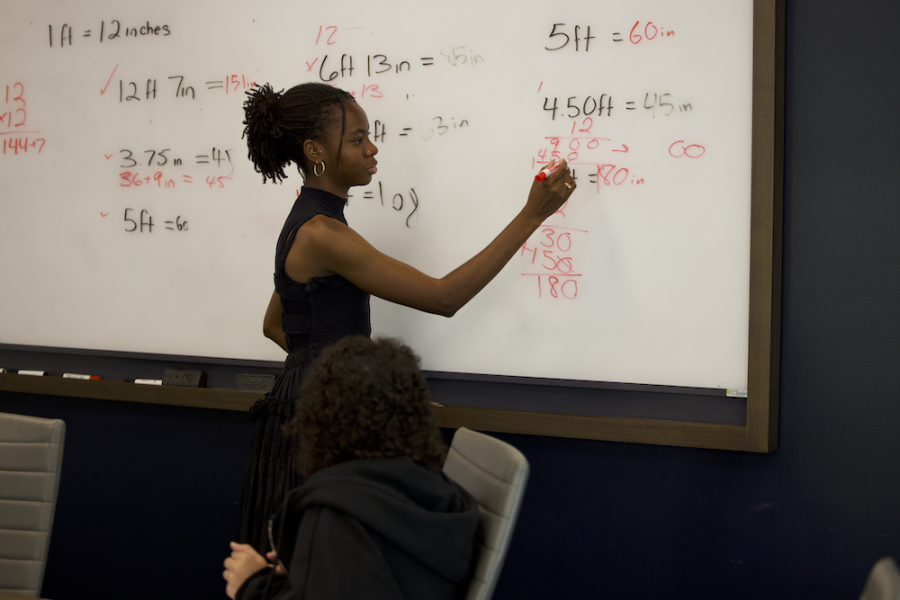 1ft = 12 inches
13
×12
144+7
12ft 7in = 151in
3.75 in = 45
36+9in = 45
5ft = 60
12
6ft 13in = 85in
+13
ft = 33in
= 108
5ft = 60in
4.50ft = 45in
12
900
450
ft = 180in
30
150
180